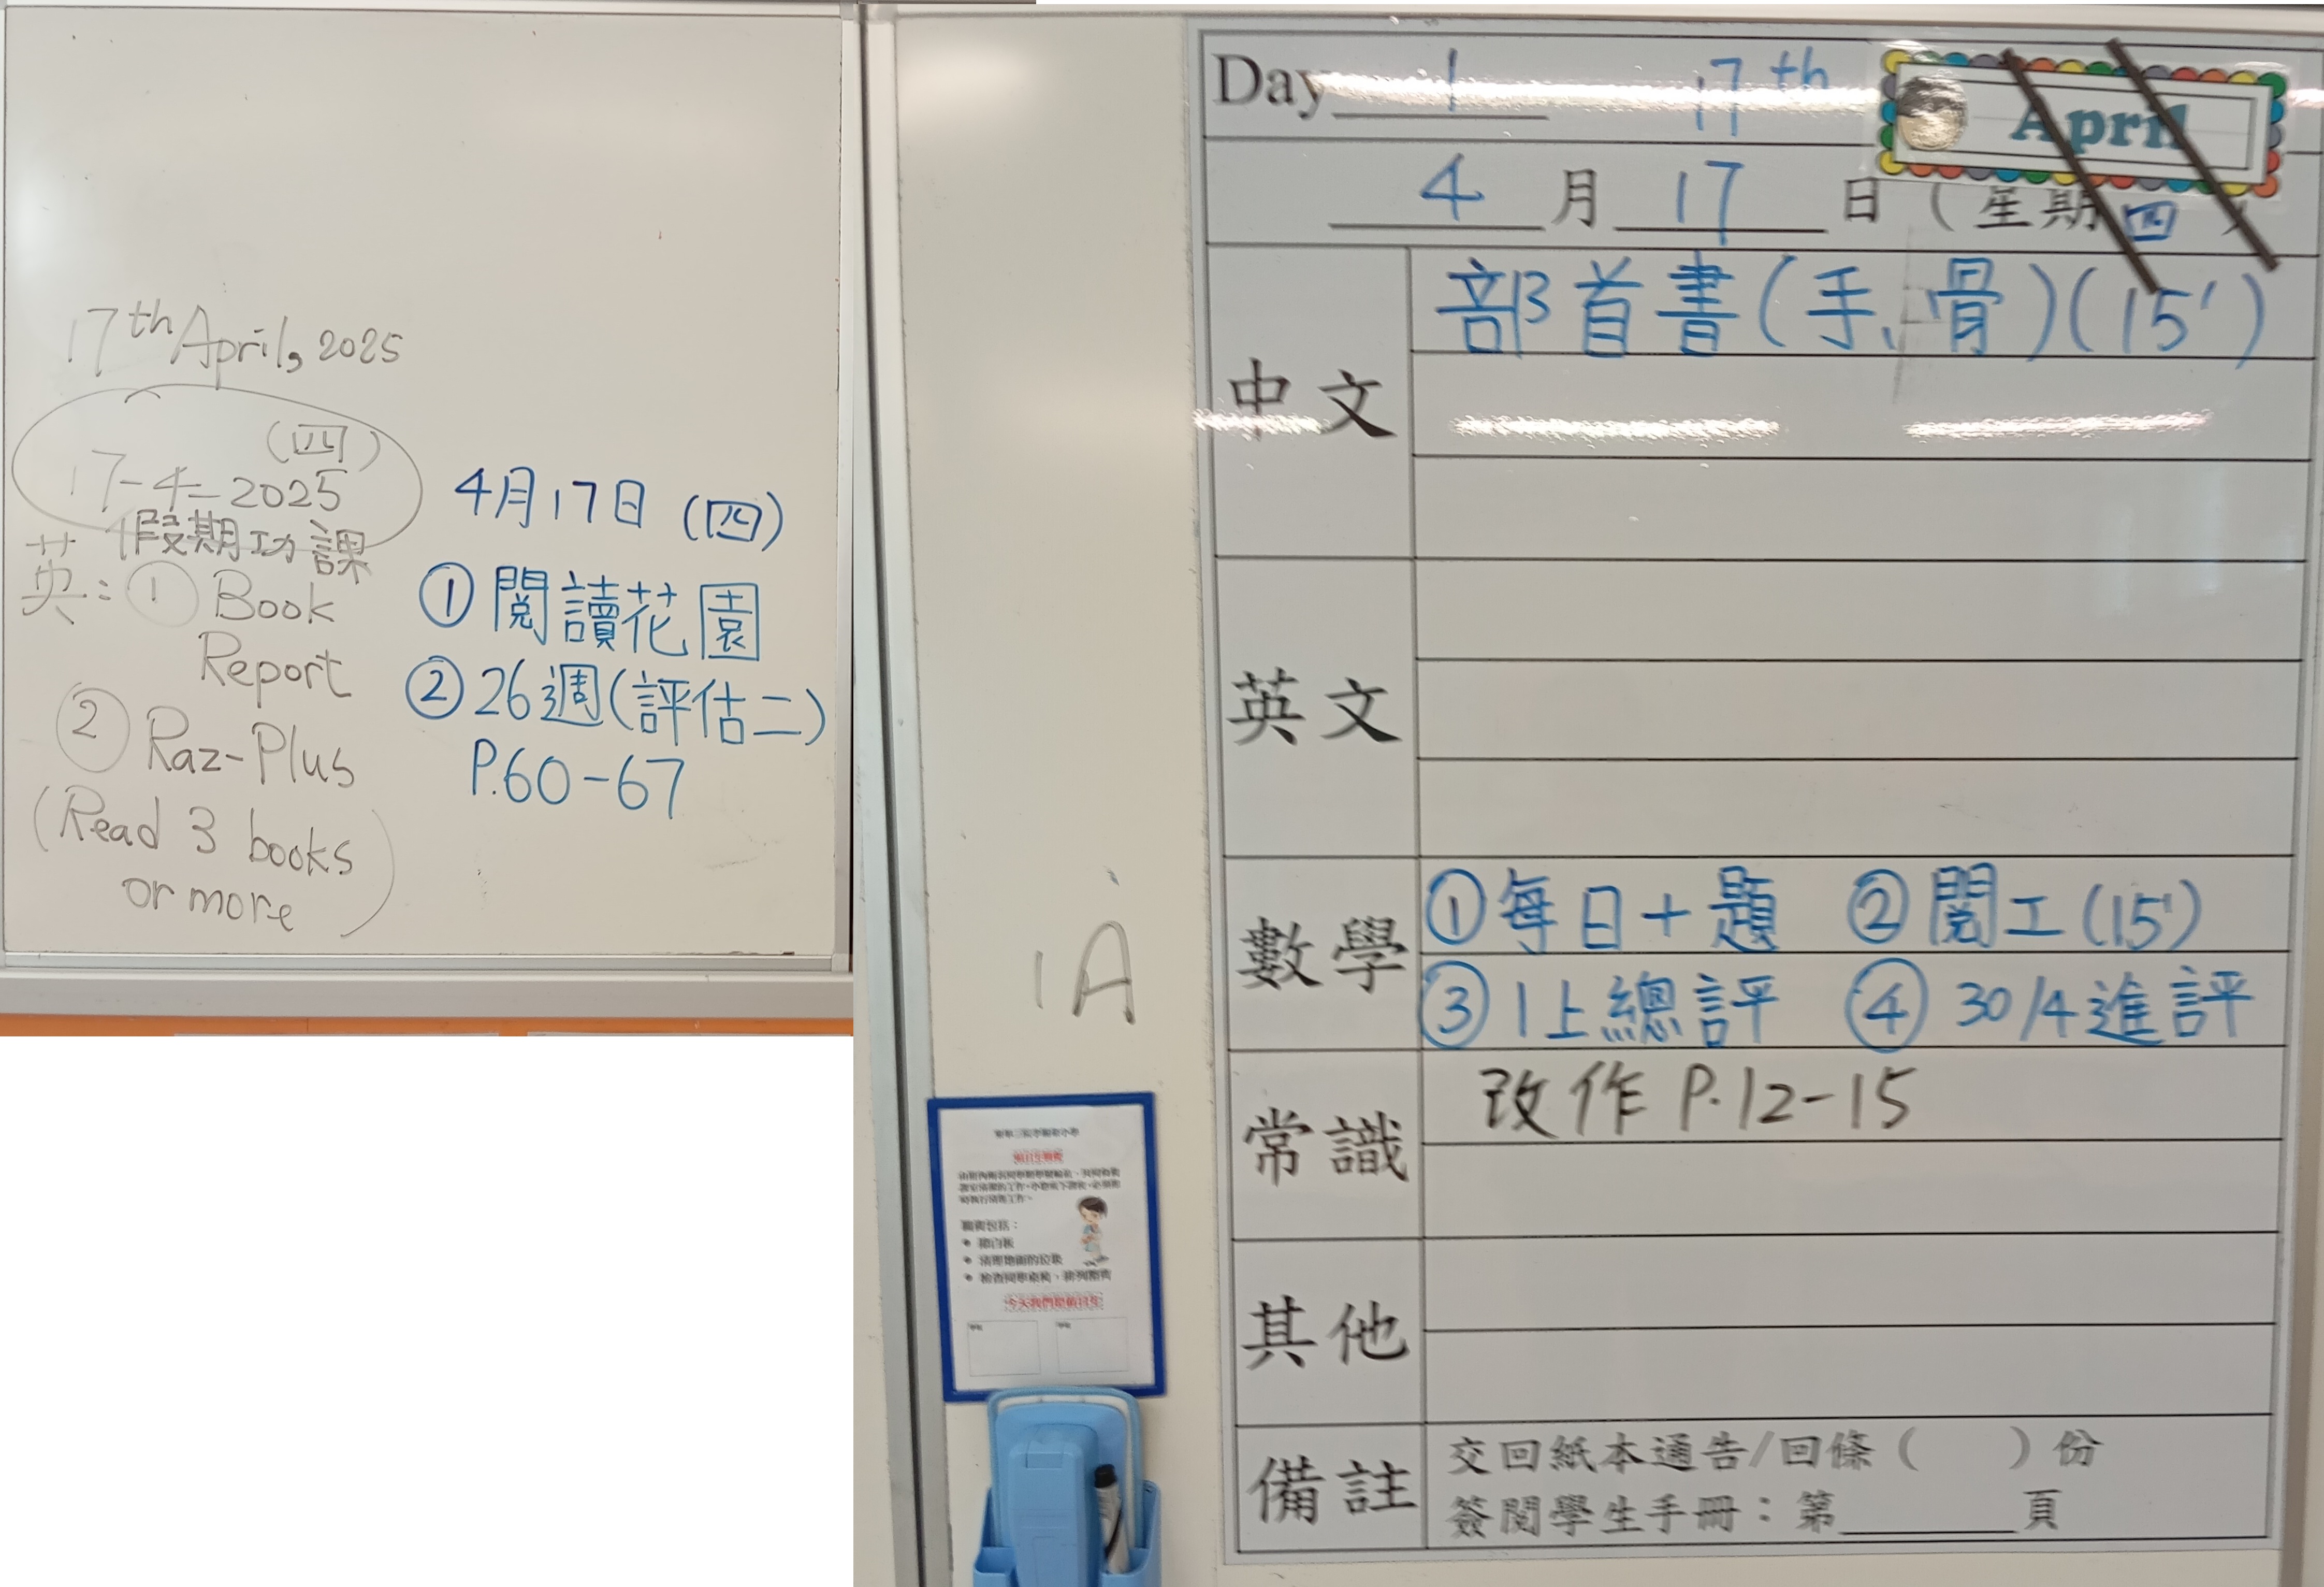 17th April, 2025
(四)
17-4-2025
假期功課
英: ① Book
Report
② Raz-Plus
(Read 3 books
or more)
4月17日 (四)
① 閱讀花園
② 26週(評估二)
P.60-67
1A
Day 1 17th April
4 月 17 日 (星期四)
中文
部首書(手、骨)(15')
英文
數學
①每日十題 ②閱工(15')
③1上總評 ④30/4進評
常識
改作 P.12-15
其他
備註
交回紙本通告/回條( )份
簽閱學生手冊:第______頁
職責包括: